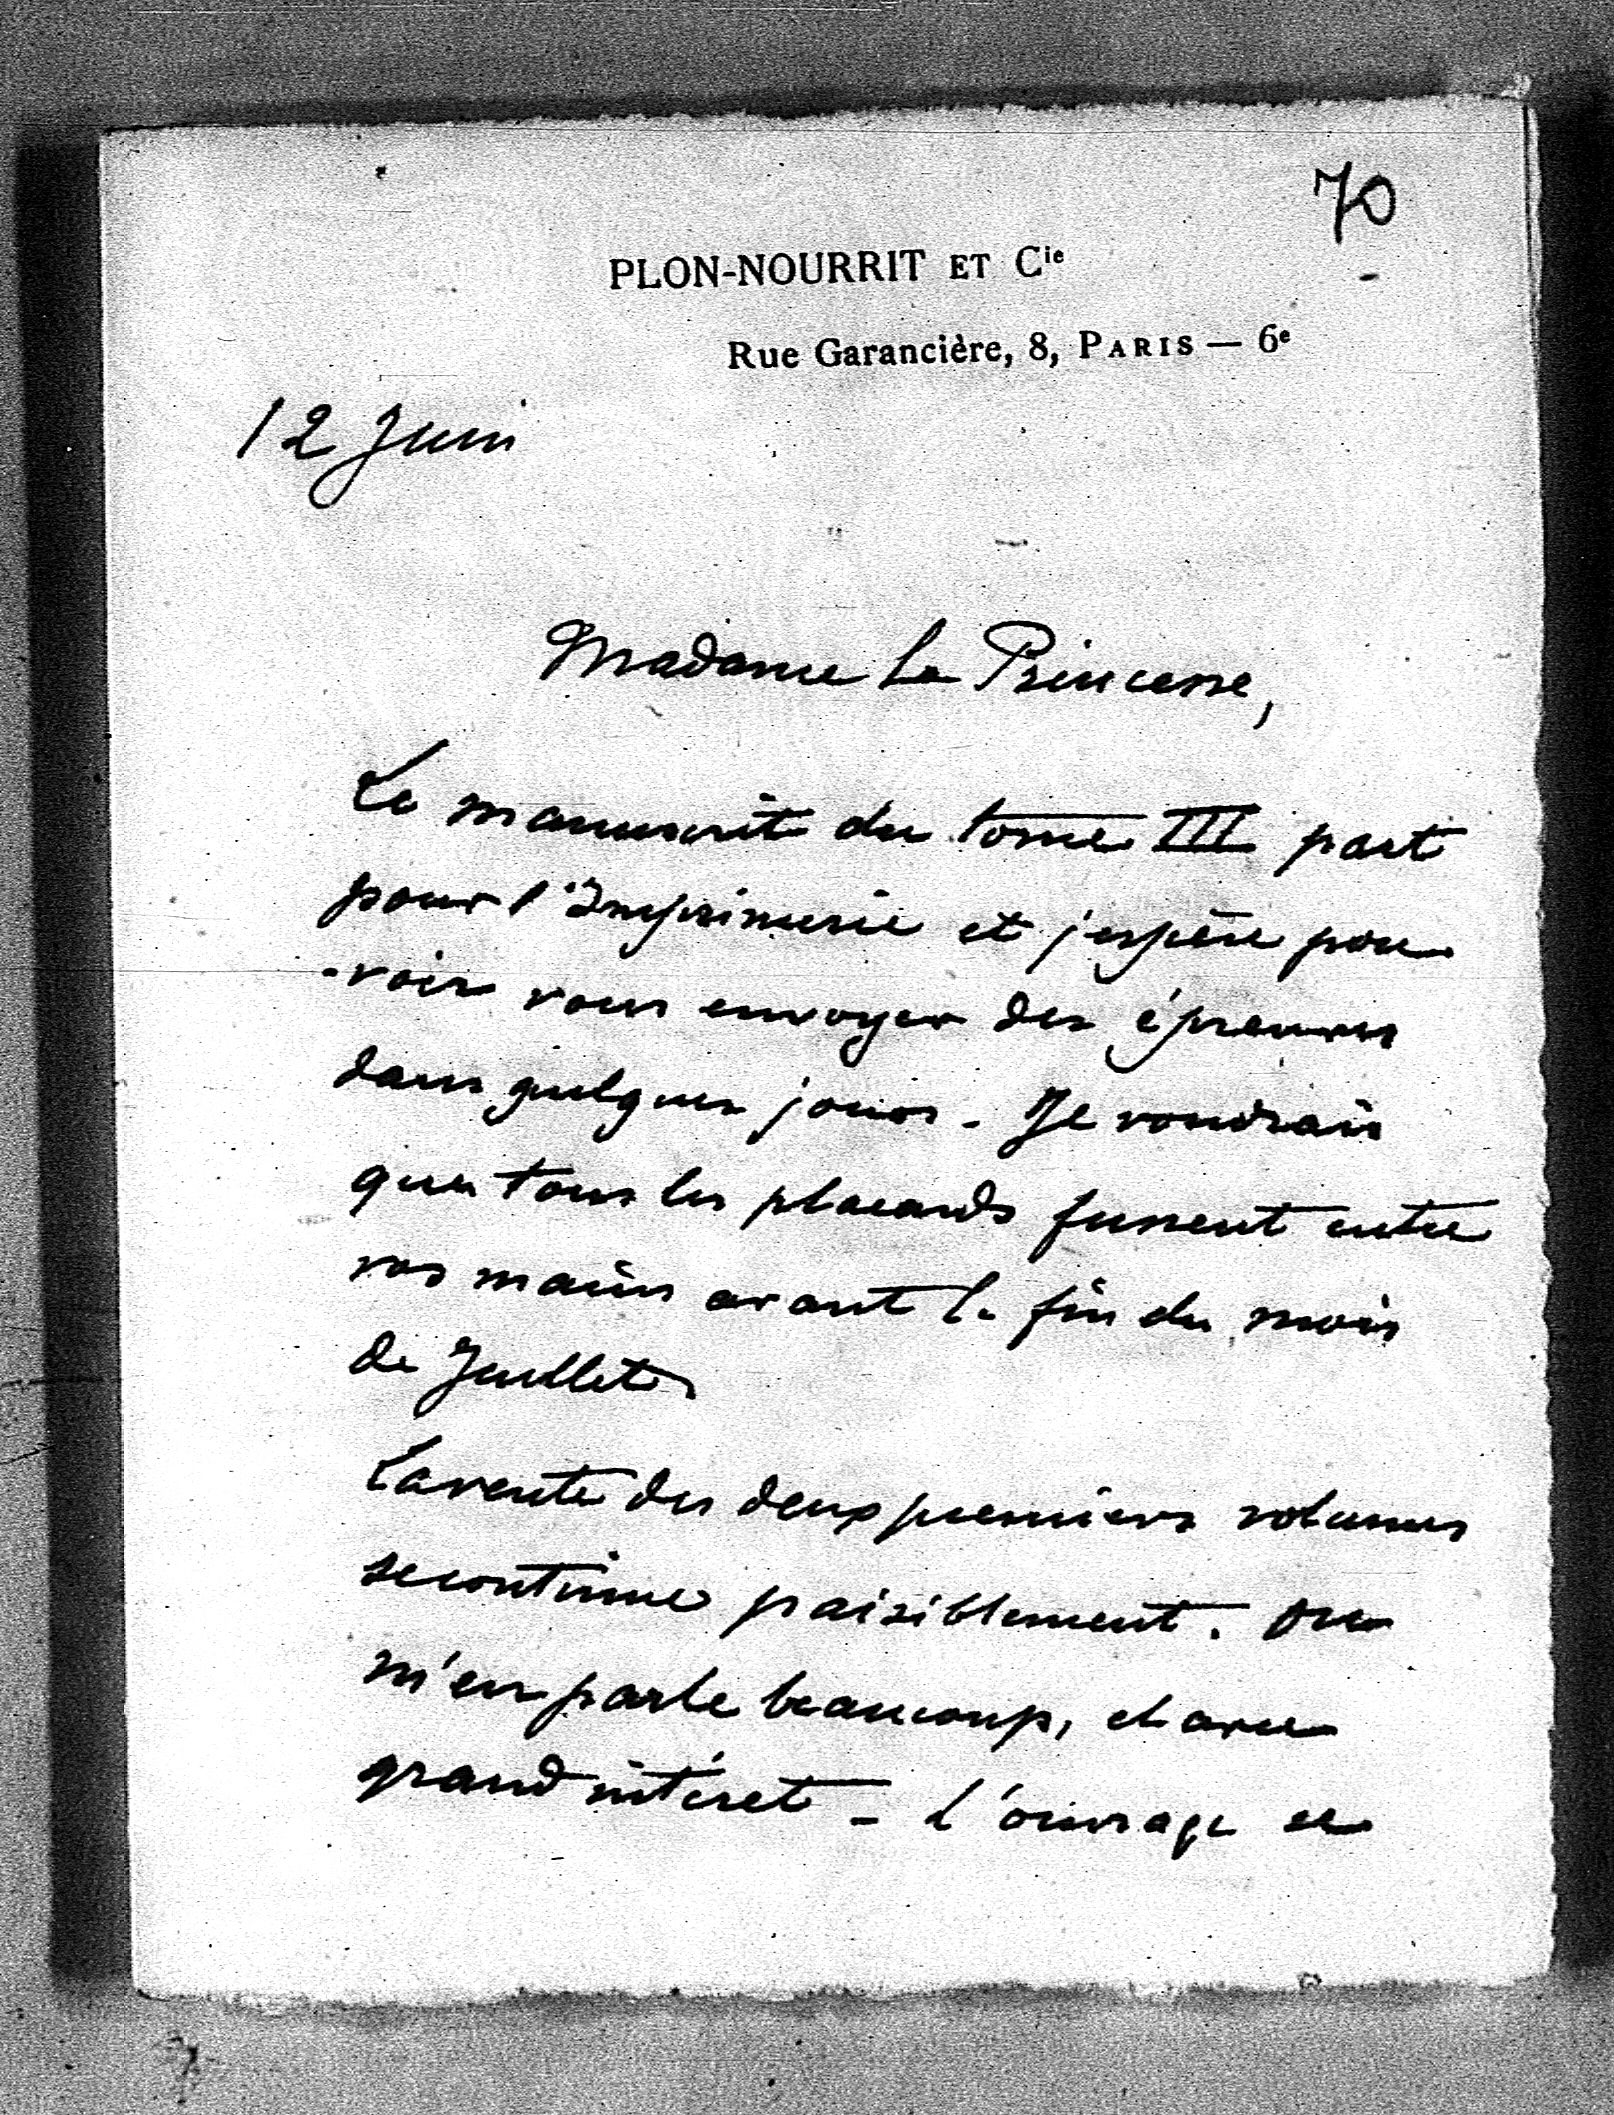 70
PLON-NOURRIT ET Cie
Rue Garancière, 8, PARIS — 6e
12 Juin
Madame la Princesse,
Le manuscrit du tome III part
pour l'Imprimerie et j'espère pou
-voir vous envoyer des épreuves
dans quelques jours. Je voudrais
que tous les placards fussent entre
vos mains avant la fin du mois
de Juillet.
La vente des deux premiers volumes
se continue paisiblement. On
m'en parle beaucoup, et avec
grand intéret - L'ouvrage se